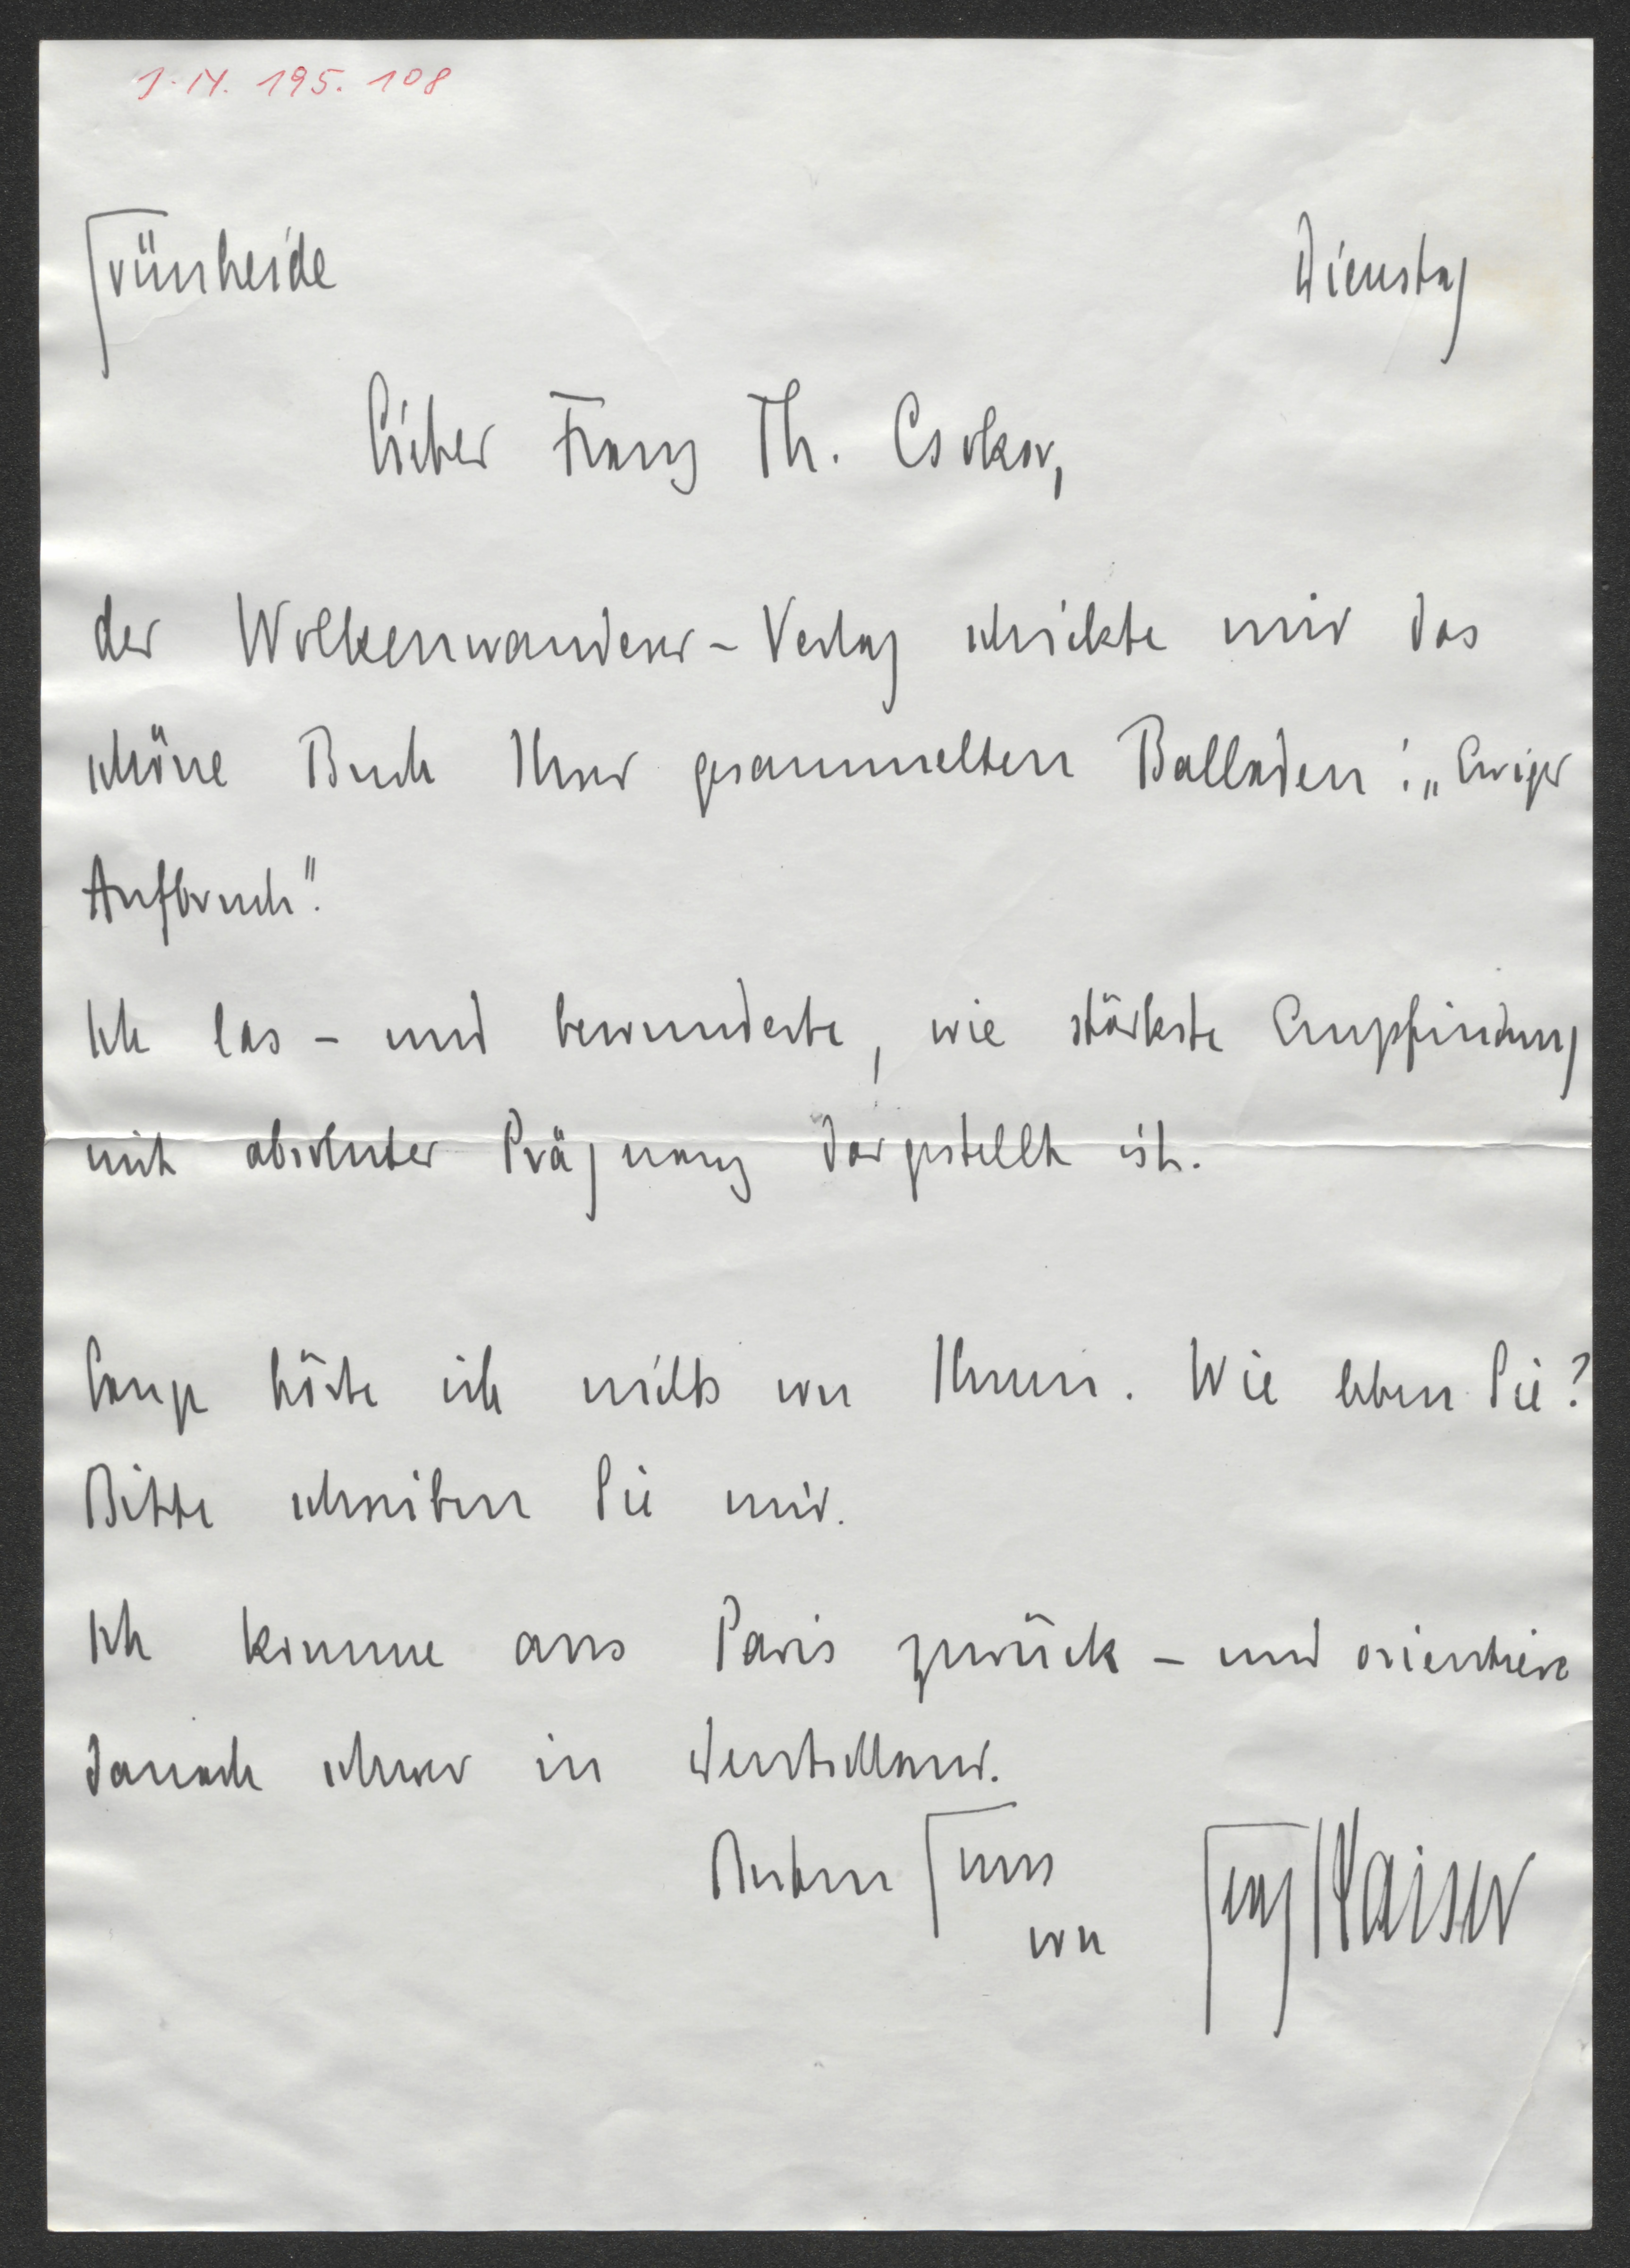 J.N. 195.108
Grünheide
Dienstag
Lieber Franz Th. Csokor,
der Wolkenwanderer-Verlag schickte mir das
schöne Buch Ihrer gesammelten Balladen: „Ewiger
Aufbruch".
Ich las - und bewunderte, wie stärkste Empfindung
mit absoluter Prägnanz dargestellt ist.
Lange hörte ich nichts von Ihnen. Wie leben Sie?
Bitte schreiben Sie mir.
Ich komme aus Paris zurück - und orientiere
danach schwer in Deutschland.
Besten Gruss
von
Georg Kaiser